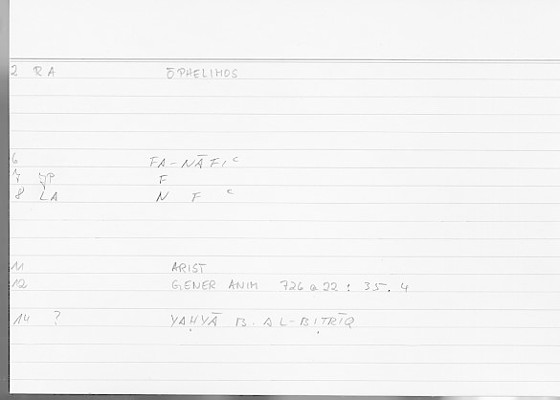 2 RA ŌPHELIMOS
6 FA-NĀFIᶜ
7 JP F
8 LA N F ᶜ
11 ARIST
12 GENER ANIM 726 a 22 : 35.4
14 ? YAḤYĀ B. AL-BIṬRĪQ